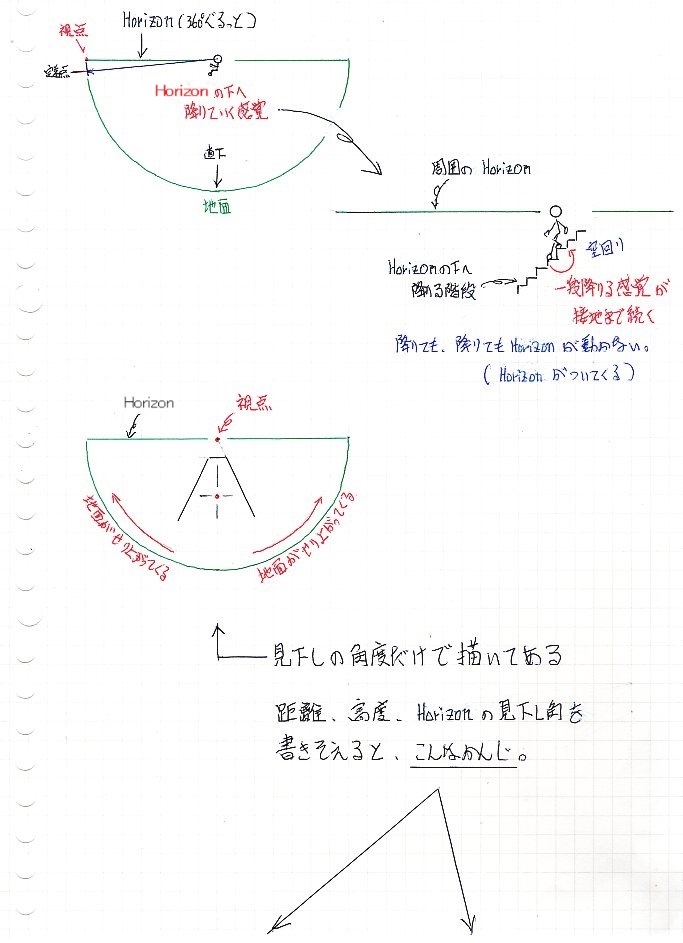 Horizon (360°ぐるっと)
視点
Horizonの下へ
降りていく感覚
直下
地面
周囲の Horizon
空回り
Horizonの下へ
降りる階段
一段降りる感覚が
接地まで続く
降りても、降りてもHorizonが動かない。
(Horizonがついてくる)
Horizon
視点
地面がせり上がってくる
地面がせり上がってくる
見下しの角度だけで描いてある
距離、高度、Horizonの見下し角を
書きそえると、こんなかんじ。